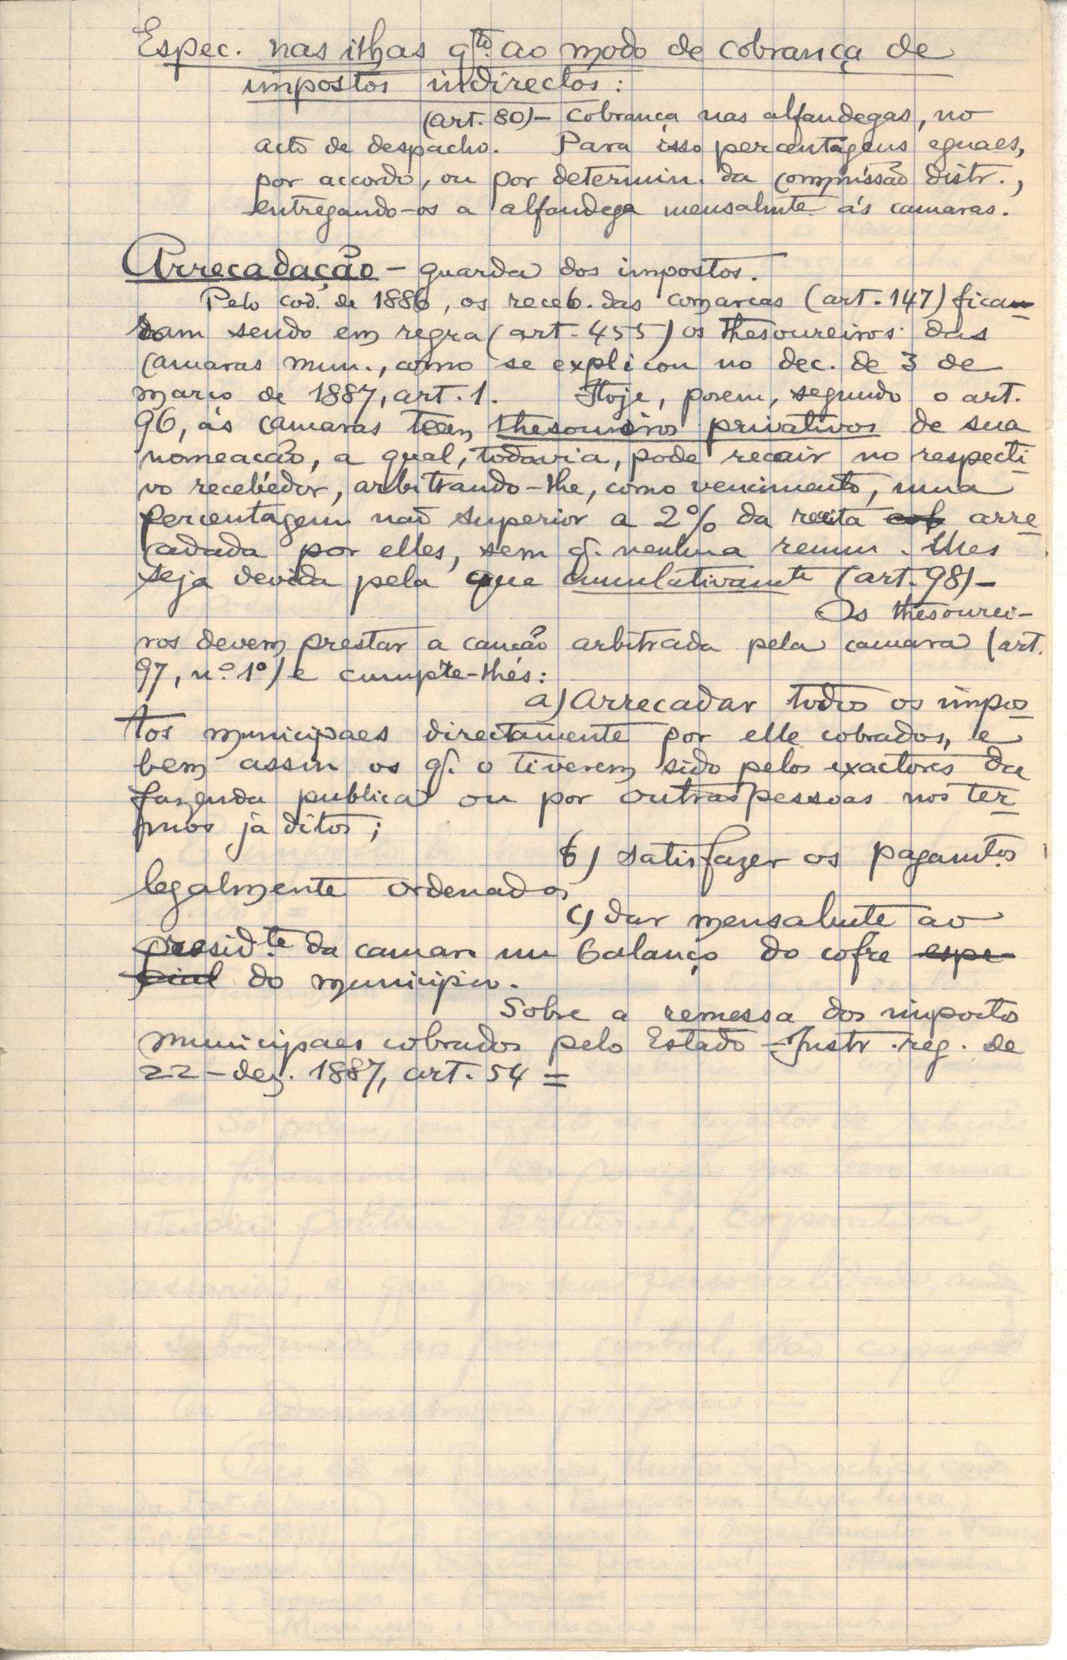 Espec. nas ilhas qto ao modo de cobrança de
impostos indirectos:
(art. 80) – Cobrança nas alfandegas, no
acto de despacho. Para isso percentagens eguaes,
por accordo, ou por determin. da commissão distr.,
entregando-os a alfandega mensalmte ás camaras.
Arrecadação – guarda dos impostos.
Pelo cod. de 1886, os receb. das comarcas (art. 147) fica
vam sendo em regra (art. 455) os thesoureiros das
camaras mun., como se explicou no dec. de 3 de
março de 1887, art. 1. Hoje, porem, segundo o art.
96, ás camaras teem thesoureiros privativos de sua
nomeação, a qual, todavia, pode recair no respecti-
vo recebedor, arbitrando-lhe, como vencimento, uma
percentagem não superior a 2% da receita cob arre-
cadada por elles, sem q. nenhuma remun. lhes
seja devida pela que cumulativamte (art. 98) –
Os thesourei-
ros devem prestar a caução arbitrada pela camara (art.
97, n.º 1º) e cumpre-lhes:
a) Arrecadar todos os impos-
tos municipaes directamente por elle cobrados, e
bem assim os q. o tiverem sido pelos exactores da
fazenda publica ou por outras pessoas nos ter-
mos já ditos;
b) satisfazer os pagamtos
legalmente ordenados
c) dar mensalmte ao
presidte da camara um balanço do cofre espe-
cial do municipio.
Sobre a remessa dos impostos
municipaes cobrados pelo Estado – Instr. reg. de
22 – dez. 1887, art. 54 =